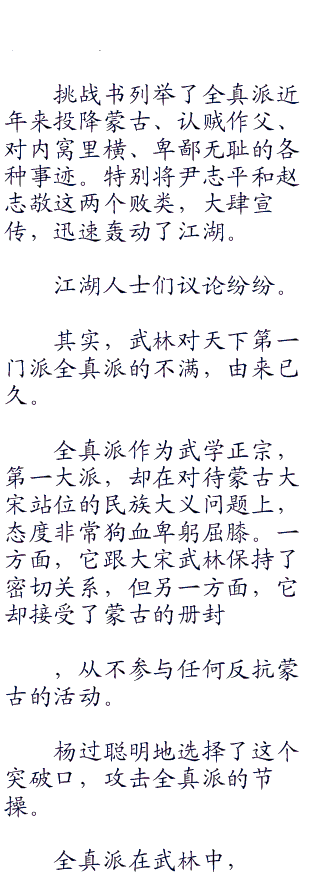 挑战书列举了全真派近
年来投降蒙古、认贼作父、
对内窝里横、卑鄙无耻的各
种事迹。特别将尹志平和赵
志敬这两个败类，大肆宣
传，迅速轰动了江湖。
江湖人士们议论纷纷。
其实，武林对天下第一
门派全真派的不满，由来已
久。
全真派作为武学正宗，
第一大派，却在对待蒙古大
宋站位的民族大义问题上，
态度非常狗血卑躬屈膝。一
方面，它跟大宋武林保持了
密切关系，但另一方面，它
却接受了蒙古的册封
，从不参与任何反抗蒙
古的活动。
杨过聪明地选择了这个
突破口，攻击全真派的节
操。
全真派在武林中，